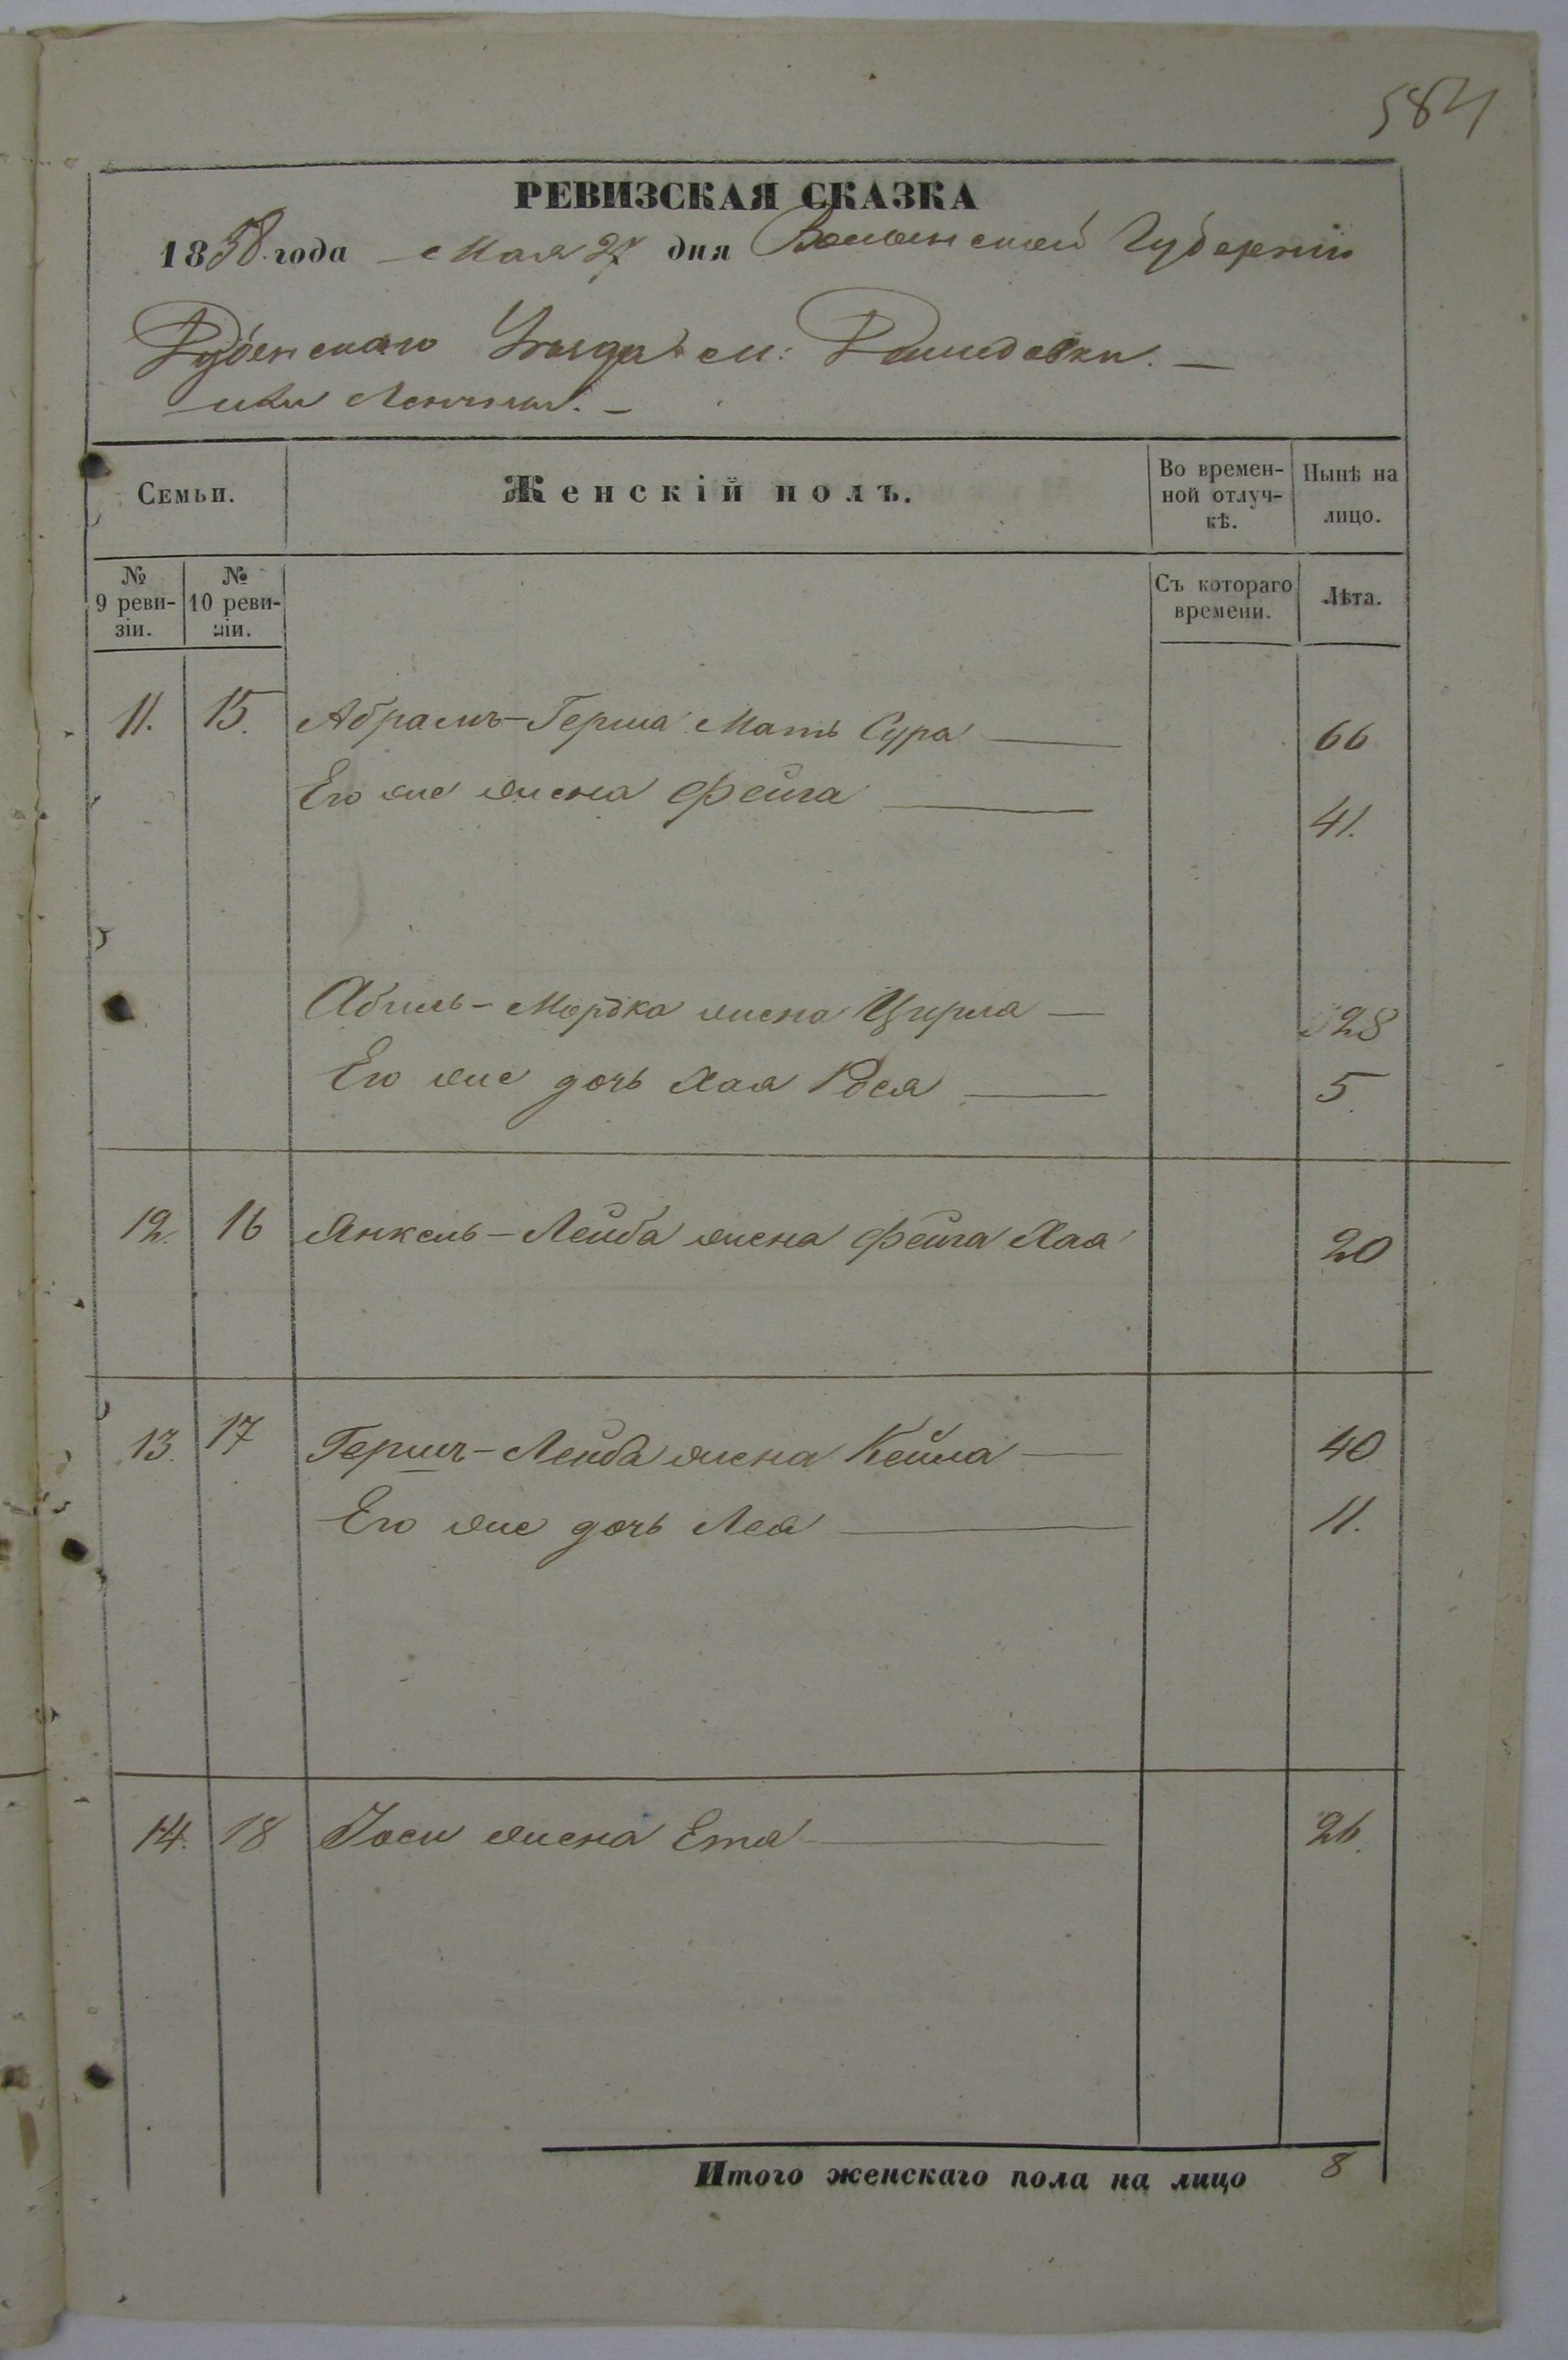 584
РЕВИЗСКАЯ СКАЗКА
1858 года Мая 27 дня Волынской Губерніи
Дубенскаго Уѣзда м:
или
Семьи. Женскій полъ. Во временной отлучкѣ. Нынѣ на лицо.
№ 9 ревизіи. № 10 ревизіи. Съ котораго времени. Лѣта.
11. 15. Абрамъ-Герша Мать Сура 66
Его же жена Фейга 41.
Мордка жена Цирля 28
Его же дочь Хая Рося 5.
12. 16 Янкель-Лейба жена Фейга Хая 20
13. 17 Гершъ-Лейба жена Кейла 40
Его же дочь Лея 11.
14. 18 Іоси жена Етя 26.
Итого женскаго пола на лицо 8